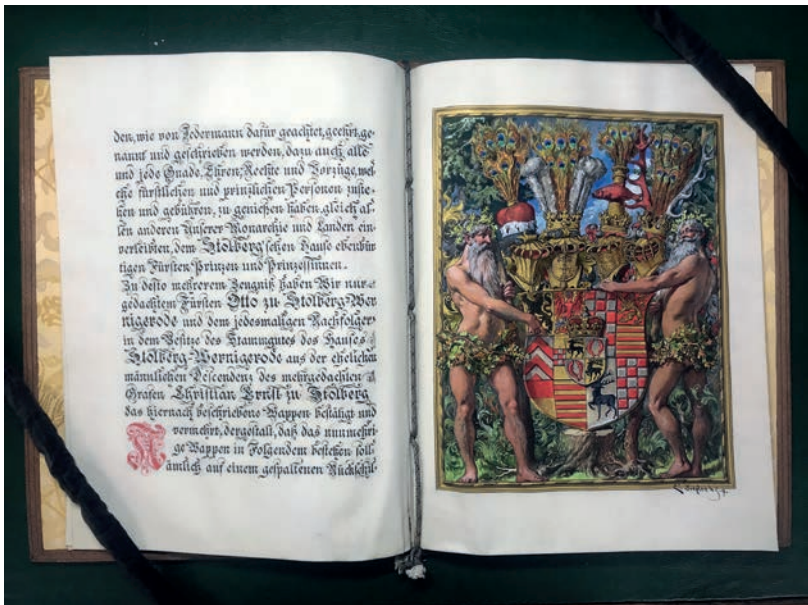 den, wie von Jedermann dafür geachtet, geehrt, ge-
nannt und geschrieben werden, dazu auch alle
und jede Gnade, Ehren, Rechte und Vorzüge, wel
che fürstlichen und prinzlichen Personen zuste-
hen und gebühren, zu genießen haben, gleich al-
len anderen Unserer Monarchie und Landen ein-
verleibten, dem Stolberg'schen Hause ebenbür
tigen Fürsten Prinzen und Prinzessinnen.
Zu desto mehrerem Zeugniß haben Wir nur-
gedachtem Fürsten Otto zu Stolberg-Wer
nigerode und dem jedesmaligen Nachfolger
in dem Besitze des Stammgutes des Hauses
Stolberg-Wernigerode aus der ehelichen
männlichen Descendenz des mehrgedachten
Grafen Christian Ernst zu Stolberg
das hiernach beschriebene Wappen bestätigt und
vermehrt, dergestalt, daß das nunmehri
ge Wappen in Folgendem bestehen soll:
Nämlich auf einem gespaltenen Rückschil-